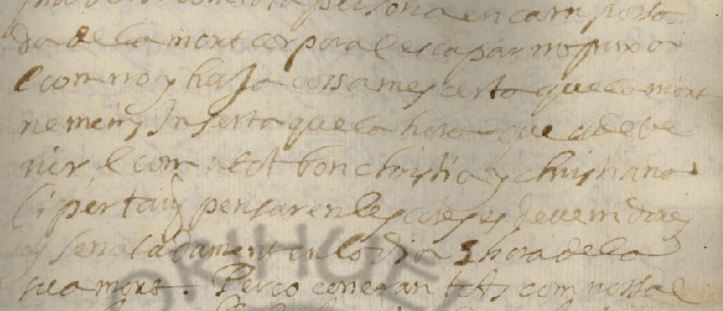 persona en carn posta
da de la mort corporal escapar no puixa
e com no y haja cossa mes certa que la mort
ne menys inserta que la hora que ha de ve
nir, e com a tot bon christia y christiana
li pertany pensar en les coses esdevenidores
y senaladament en lo dia y hora de la
sua mort. Perço coneguan tots com nosal
ORIHUE